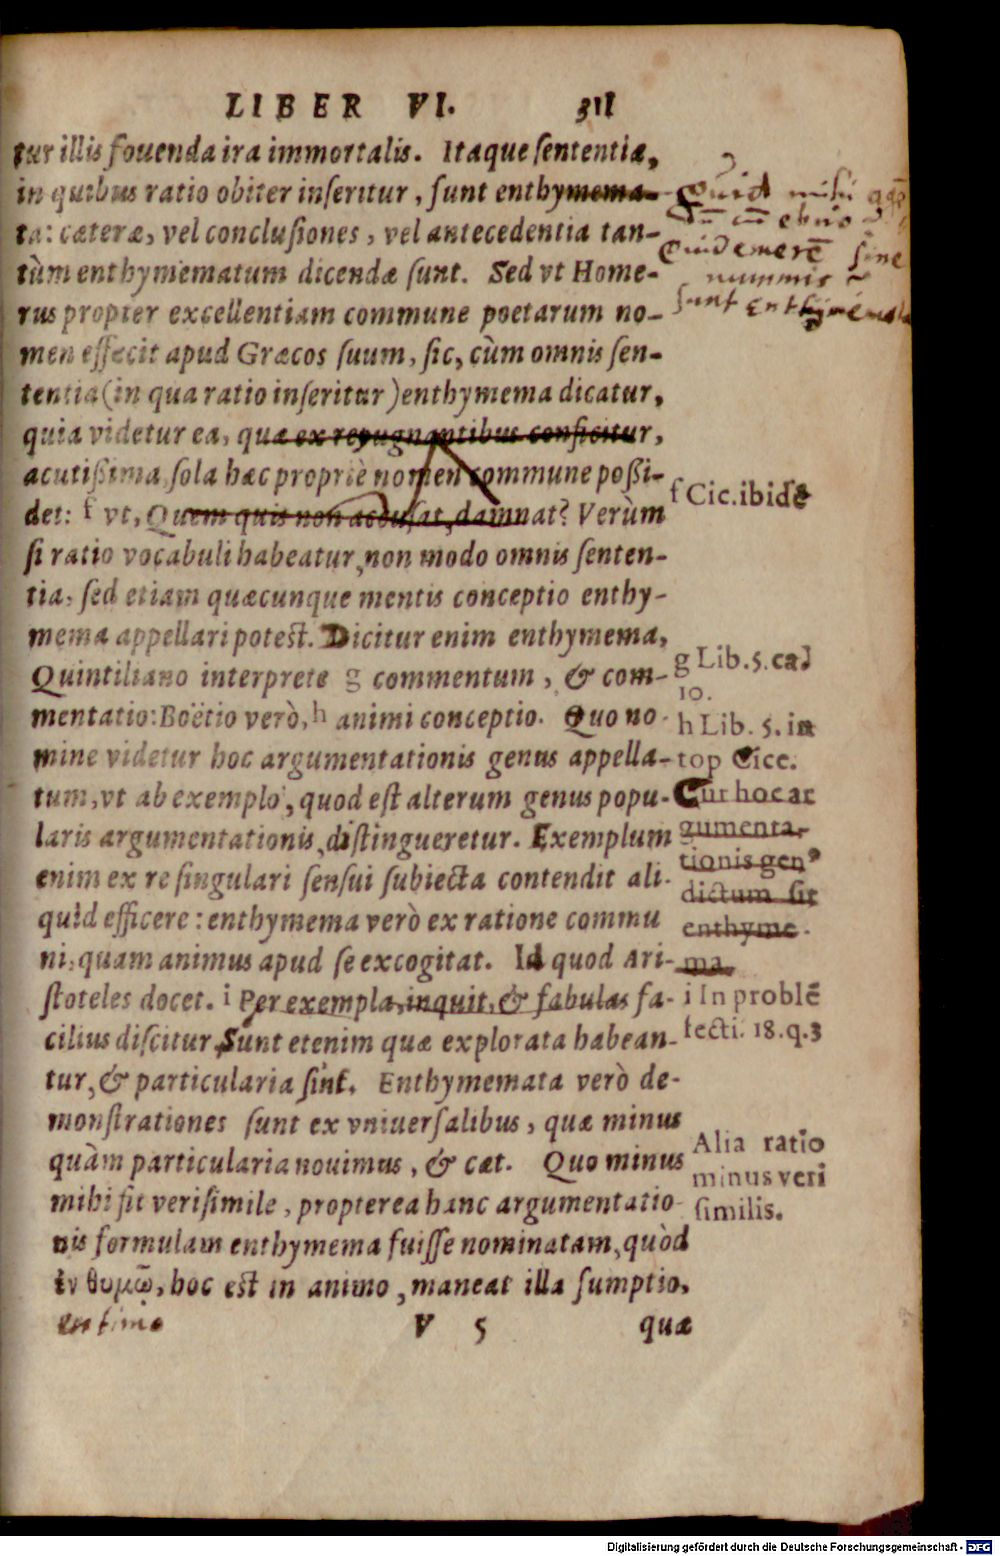 LIBER VI. 311
tur illis fouenda ira immortalis. Itaque ſententiæ,
in quibus ratio obiter inſeritur, ſunt enthymema-
ta: cæteræ, vel concluſiones, vel antecedentia tan-
tùm enthymematum dicendæ ſunt. Sed vt Home-
rus propter excellentiam commune poetarum no-
men effecit apud Græcos ſuum, ſic, cùm omnis ſen-
tentia (in qua ratio inſeritur) enthymema dicatur,
quia videtur ea, quæ ex repugnantibus conficitur,
acutißima, ſola hæc propriè nomen commune poßi-
det: f vt, Quem quis non accuſat, damnat? Verùm
ſi ratio vocabuli habeatur, non modo omnis ſenten-
tia, ſed etiam quæcunque mentis conceptio enthy-
mema appellari poteſt. Dicitur enim enthymema,
Quintiliano interprete g commentum, & com-
mentatio: Boëtio verò, h animi conceptio. Quo no-
mine videtur hoc argumentationis genus appella-
tum, vt ab exemplo, quod eſt alterum genus popu-
laris argumentationis, diſtingueretur. Exemplum
enim ex re ſingulari ſenſui ſubiecta contendit ali-
quid efficere: enthymema verò ex ratione commu
ni, quam animus apud ſe excogitat. Id quod Ari-
ſtoteles docet. i Per exempla, inquit, & fabulas fa-
cilius diſcitur. Sunt etenim quæ explorata habean-
tur, & particularia ſint. Enthymemata verò de-
monſtrationes ſunt ex vniuerſalibus, quæ minus
quàm particularia nouimus, & cæt. Quo minus
mihi ſit veriſimile, propterea hanc argumentatio-
nis formulam enthymema fuiſſe nominatam, quòd
ἐν θυμῷ, hoc eſt in animo, maneat illa ſumptio,
V 5 quæ
Quid mihi
ebrio
ſine
nummis
ſunt Enthymemata
f Cic. ibidē
g Lib. 5. ca.
10.
h Lib. 5. in
top Cice.
Cur hoc ar
gumenta-
tionis gen9
dictum ſit
enthyme-
ma.
i In problē
ſecti. 18. q. 3
Alia ratio
minus veri
ſimilis.
Digitalisierung gefördert durch die Deutsche Forschungsgemeinschaft - DFG